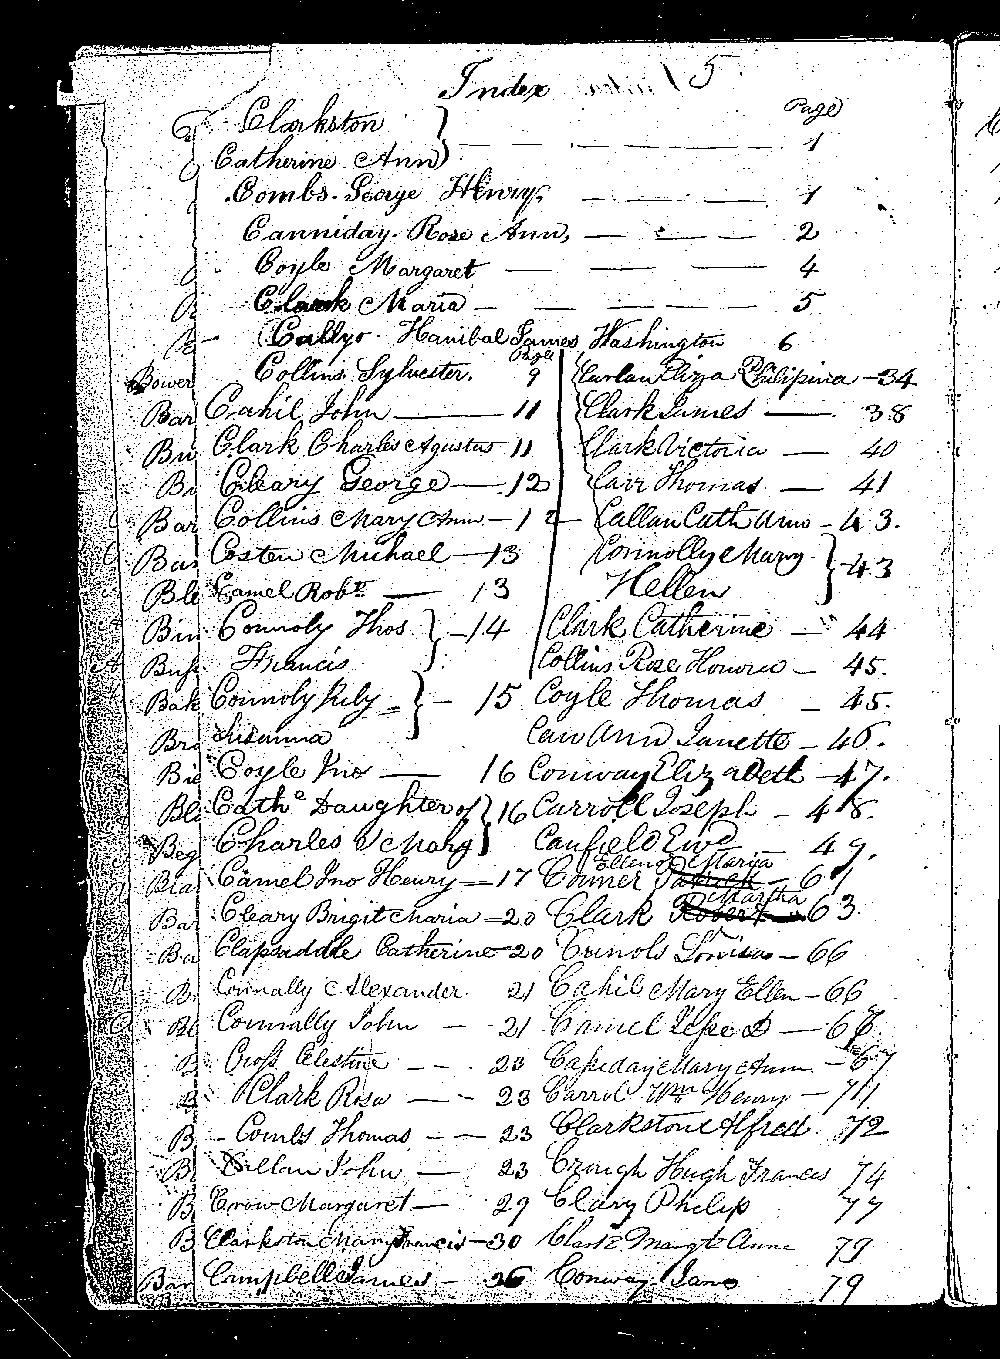 Index 5
Page
Clarkston
Catherine Ann } 1
Combs. George Henry, 1
Canniday. Rose Ann, 2
Coyle Margaret 4
Clark Maria 5
Callyo Hanibal James Washington 6
Page
Collins Sylvester. 9
Cahil John 11
Clark Charles Agustus 11
Cleary George 12
Collins Mary Ann 12
Costen Michael 13
Camel Robt 13
Connoly Thos } 14
Francis
Connoly July } 15
Susanna
Coyle Jno 16
Cathe Daughter of } 16
Charles & Mahy
Camel Jno Henry 17
Cleary Brigit Maria 20
Clapsaddle Catherine 20
Connally Alexander 21
Connally John 21
Cross Celestine 23
Clark Rosa 23
Combs Thomas 23
Cillan John 23
Crow Margaret 29
Clarkston Mary Francis 30
Campbell James 36
Curlan Eliza Philipina 34
Clark James 38
Clark Victoria 40
Carr Thomas 41
Callan Cath Ann 43.
Connolly Mary } 43
Hellen
Clark Catherine 44
Collins Rose Honora 45.
Coyle Thomas 45.
Carr Ann Janette 46.
Conway Elizabeth 47.
Carroll Joseph 48.
Canfield Ewd 49.
Ellenor Marya
Comer Patrick 61
Martha
Clark Robert 63
Louisa 66
Cahil Mary Ellen 66
Camel
Mary Ann 67
Carrol Wm Henry 711
Clarkston Alfred 72
Crough Hugh Francis 74
Clary Philip 77
Clark Margt Anne 79
Conway Jane 79
Bower
Bar
Bar
Bar